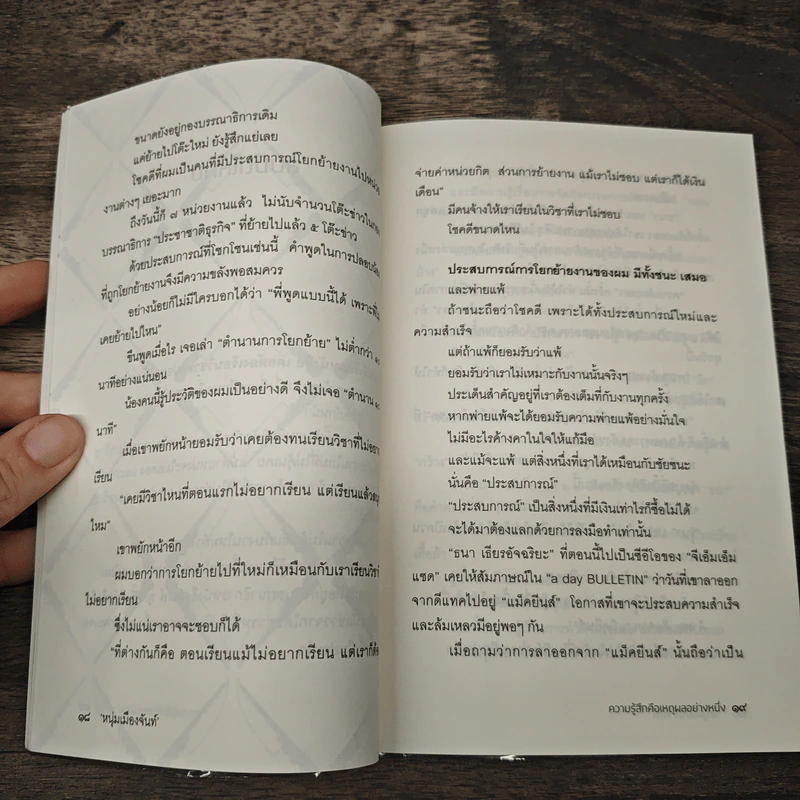 ขนาดยังอยู่กองบรรณาธิการเดิม
แค่ย้ายไปโต๊ะใหม่ ยังรู้สึกแย่เลย
โชคดีที่ผมเป็นคนที่มีประสบการณ์โยกย้ายงานไปหน่วย
งานต่างๆ เยอะมาก
ถึงวันนี้ก็ ๗ หน่วยงานแล้ว ไม่นับจำนวนโต๊ะข่าวในกอง
บรรณาธิการ “ประชาชาติธุรกิจ” ที่ย้ายไปแล้ว ๕ โต๊ะข่าว
ด้วยประสบการณ์ที่โชกโชนเช่นนี้ คำพูดในการปลอบน้อง
ที่ถูกโยกย้ายงานจึงมีความขลังพอสมควร
อย่างน้อยก็ไม่มีใครบอกได้ว่า “พี่พูดแบบนี้ได้ เพราะพี่ไม่
เคยย้ายไปไหน”
ขืนพูดเมื่อไร เจอเล่า “ตำนานการโยกย้าย” ไม่ต่ำกว่า ๓๐
นาทีอย่างแน่นอน
น้องคนนี้รู้ประวัติของผมเป็นอย่างดี จึงไม่เจอ “ตำนาน ๓๐
นาที”
เมื่อเขาพยักหน้ายอมรับว่าเคยต้องทนเรียนวิชาที่ไม่อยาก
เรียน
“เคยมีวิชาไหนที่ตอนแรกไม่อยากเรียน แต่เรียนแล้วสนุก
ไหม”
เขาพยักหน้าอีก
ผมบอกว่าการโยกย้ายไปที่ใหม่ก็เหมือนกับเราเรียนวิชาที่
ไม่อยากเรียน
ซึ่งไม่แน่เราอาจจะชอบก็ได้
“ที่ต่างกันก็คือ ตอนเรียนแม้ไม่อยากเรียน แต่เราก็ต้อง
๑๘ ‘หนุ่มเมืองจันท์’
จ่ายค่าหน่วยกิต ส่วนการย้ายงาน แม้เราไม่ชอบ แต่เราก็ได้เงิน
เดือน”
มีคนจ้างให้เราเรียนในวิชาที่เราไม่ชอบ
โชคดีขนาดไหน
ประสบการณ์การโยกย้ายงานของผม มีทั้งชนะ เสมอ
และพ่ายแพ้
ถ้าชนะถือว่าโชคดี เพราะได้ทั้งประสบการณ์ใหม่และ
ความสำเร็จ
แต่ถ้าแพ้ก็ยอมรับว่าแพ้
ยอมรับว่าเราไม่เหมาะกับงานนั้นจริงๆ
ประเด็นสำคัญอยู่ที่เราต้องเต็มที่กับงานทุกครั้ง
หากพ่ายแพ้จะได้ยอมรับความพ่ายแพ้อย่างมั่นใจ
ไม่มีอะไรค้างคาในใจให้แก้มือ
และแม้จะแพ้ แต่สิ่งหนึ่งที่เราได้เหมือนกับชัยชนะ
นั่นคือ “ประสบการณ์”
“ประสบการณ์” เป็นสิ่งหนึ่งที่มีเงินเท่าไรก็ซื้อไม่ได้
จะได้มาต้องแลกด้วยการลงมือทำเท่านั้น
“ธนา เธียรอัจฉริยะ” ที่ตอนนี้ไปเป็นซีอีโอของ “จีเอ็มเอ็ม
แซด” เคยให้สัมภาษณ์ใน “a day BULLETIN” ว่าวันที่เขาลาออก
จากดีแทคไปอยู่ “แม็คยีนส์” โอกาสที่เขาจะประสบความสำเร็จ
และล้มเหลวมีอยู่พอๆ กัน
เมื่อถามว่าการลาออกจาก “แม็คยีนส์” นั้นถือว่าเป็น
ความรู้สึกคือเหตุผลอย่างหนึ่ง ๑๙